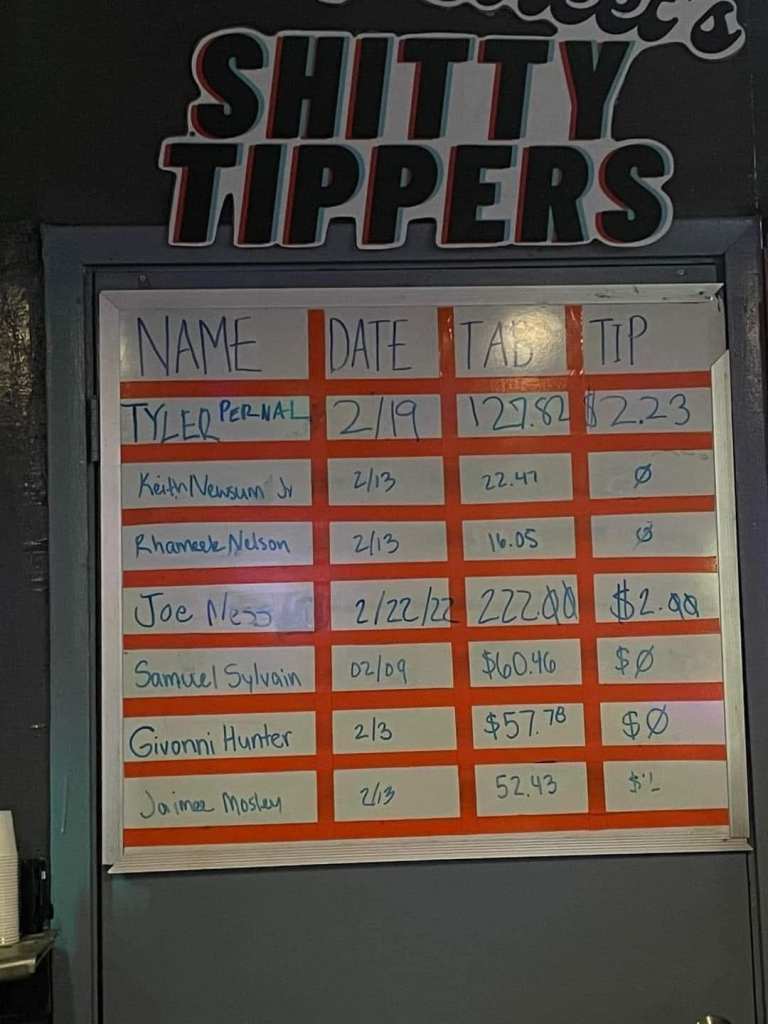 SHITTY
TIPPERS
NAME DATE TAB TIP
TYLER PERNAL 2/19 127.82 $2.23
Keith Newsum Jr 2/13 22.47 Ø
Rhameek Nelson 2/13 16.05 Ø
Joe Ness 2/22/22 222.00 $2.00
Samuel Sylvain 02/09 $60.46 $Ø
Givonni Hunter 2/3 $57.78 $Ø
Jaimee Mosley 2/13 52.43